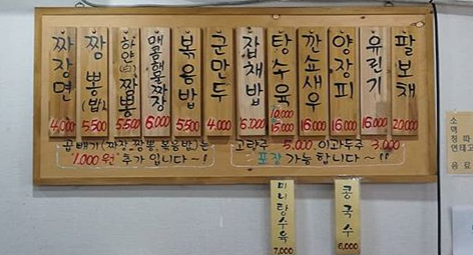 짜장면
4,000
짬뽕(밥)
5,500
하얀(백)짬뽕
5,500
매콤해물짜장
6,000
볶음밥
5,500
군만두
4,000
잡채밥
탕수육
10,000
15,000
깐쇼새우
16,000
양장피
16,000
유린기
16,000
팔보채
20,000
곱빼기(짜장.짬뽕.볶음밥)는
"1,000원" 추가 입니다~!!
고량주 5,000. 이과두주 3,000
포장 가능합니다~!
미니탕수육
7,000
콩국수
6,000